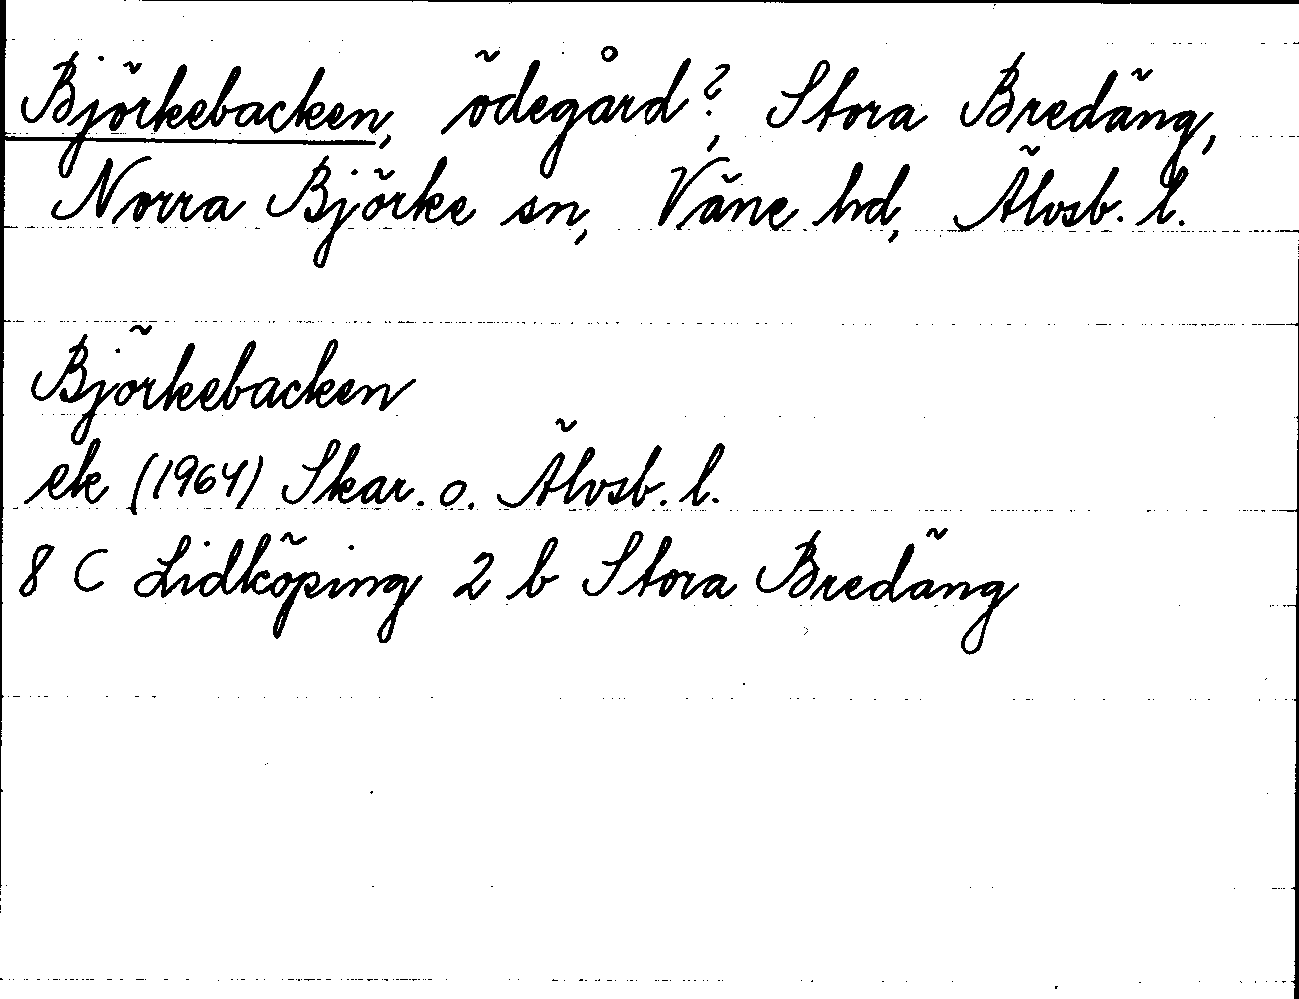 Björkebacken, ödegård?, Stora Bredäng,
Norra Björke sn, Väne hd, Älvsb. l.
Björkebacken
ek (1964) Skar. o. Älvsb. l.
8 C Lidköping 2 b Stora Bredäng